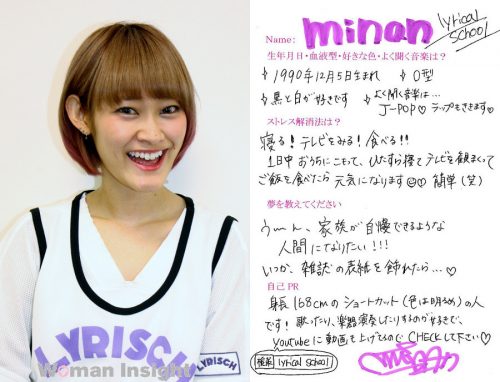 LYRISCH
LYRISCH
Woman Insight
Name: minan
lyrical
school
生年月日・血液型・好きな色・よく聞く音楽は？
1990年12月5日生まれ
O型
黒と白が好きです
よく聞く音楽は…
J-POP♡ ラップもききます♡
ストレス解消法は？
寝る！テレビをみる！食べる!!
1日中おうちにこもって、ひたすら寝てテレビを観まくって
ご飯を食べたら元気になります☺♡ 簡単(笑)
夢を教えてください
うーん、家族が自慢できるような
人間になりたい!!!
いつか、雑誌の表紙を飾れたら…♡
自己PR
身長168cmのショートカット(色は明るめ)の人
です！歌ったり、楽器演奏したりするのが好きで、
youtubeに動画も上げてるのでCHECKして下さい♡
検索 lyrical school